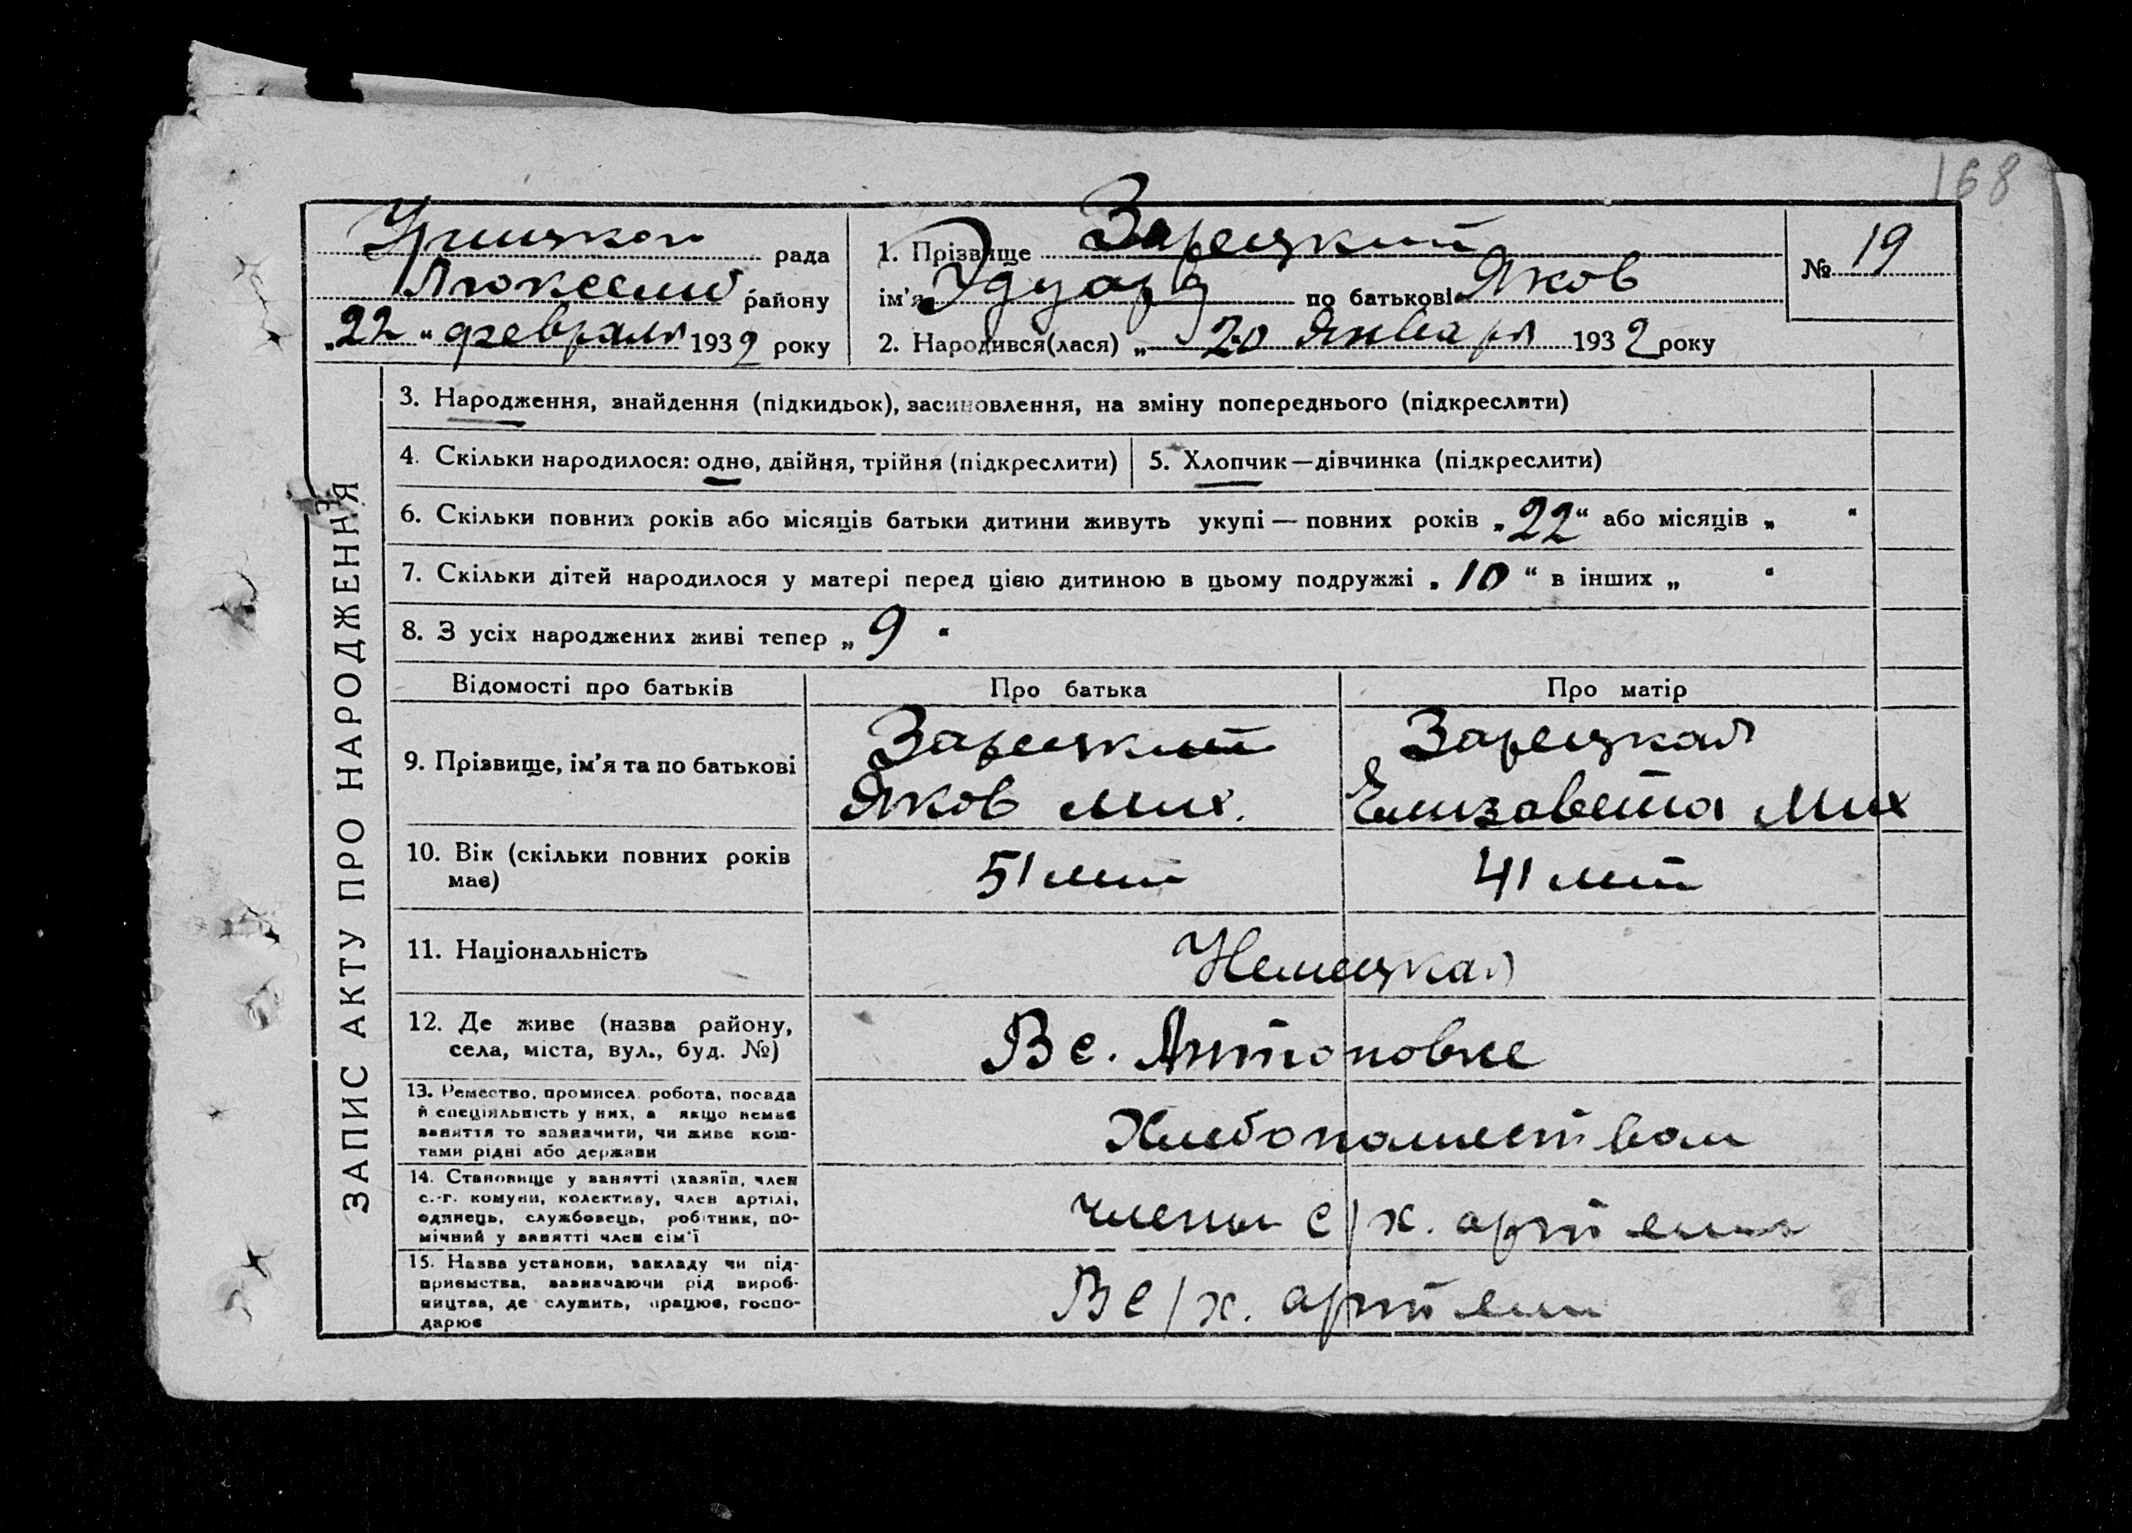 168
Урицкой рада
району
„22“ февраля 1932 року
1. Прізвище Зарецкий
ім'я Эдуард по батькові Яков
2. Народився(лася) „20 Января 1932 року
№ 19
ЗАПИС АКТУ ПРО НАРОДЖЕННЯ
3. Народження, знайдення (підкидьок), засиновлення, на зміну попереднього (підкреслити)
4. Скільки народилося: одне, двійня, трійня (підкреслити)
5. Хлопчик—дівчинка (підкреслити)
6. Скільки повних років або місяців батьки дитини живуть укупі — повних років „22“ або місяців „ “
7. Скільки дітей народилося у матері перед цією дитиною в цьому подружжі „10“ в інших „ “
8. З усіх народжених живі тепер „9“
Відомості про батьків
Про батька
Про матір
9. Прізвище, ім'я та по батькові
Зарецкий
Яков Мих.
Зарецкая
Елизавета Мих
10. Вік (скільки повних років
має)
51 лет
41 лет
11. Національність
Немецкая
12. Де живе (назва району,
села, міста, вул., буд. №)
В с. Антоновке
13. Ремество, промисел, робота, посада
й спеціяльність у них, а якщо немає
заняття то зазначити, чи живе кош-
тами рідні або держави
Хлебопашеством
14. Становище у занятті (хазяїн, член
с.-г. комуни, колективу, член артілі,
одинець, службовець, робітник, по-
мічний у занятті член сім'ї
члены с/х. артели
15. Назва установи, закладу чи під-
приємства, зазначаючи рід вироб-
ництва, де служить, працює, госпо-
дарює
В с/х. артели